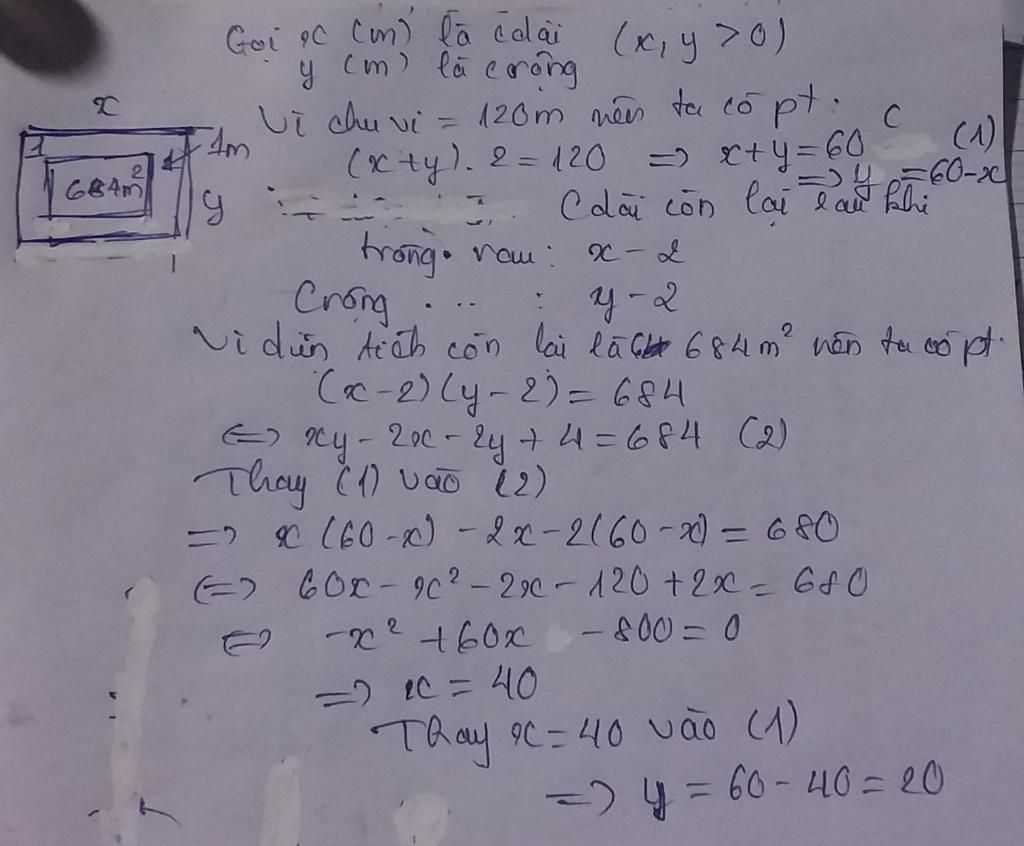 Gọi x (m) là cdài (x, y > 0)
y (m) là crộng
x
1
1m
684m²
y
Vì chu vi = 120m nên ta có pt:
(x+y). 2 = 120 => x+y = 60 (1)
=> y = 60-x
Cdài còn lại sau khi
trồng rau: x - 2
Crộng ... : y - 2
Vì diện tích còn lại là 684m² nên ta có pt.
(x-2)(y-2) = 684
<=> xy - 2x - 2y + 4 = 684 (2)
Thay (1) vào (2)
=> x (60-x) - 2x - 2(60-x) = 680
<=> 60x - x² - 2x - 120 + 2x = 680
<=> -x² + 60x - 800 = 0
=> x = 40
Thay x = 40 vào (1)
=> y = 60 - 40 = 20